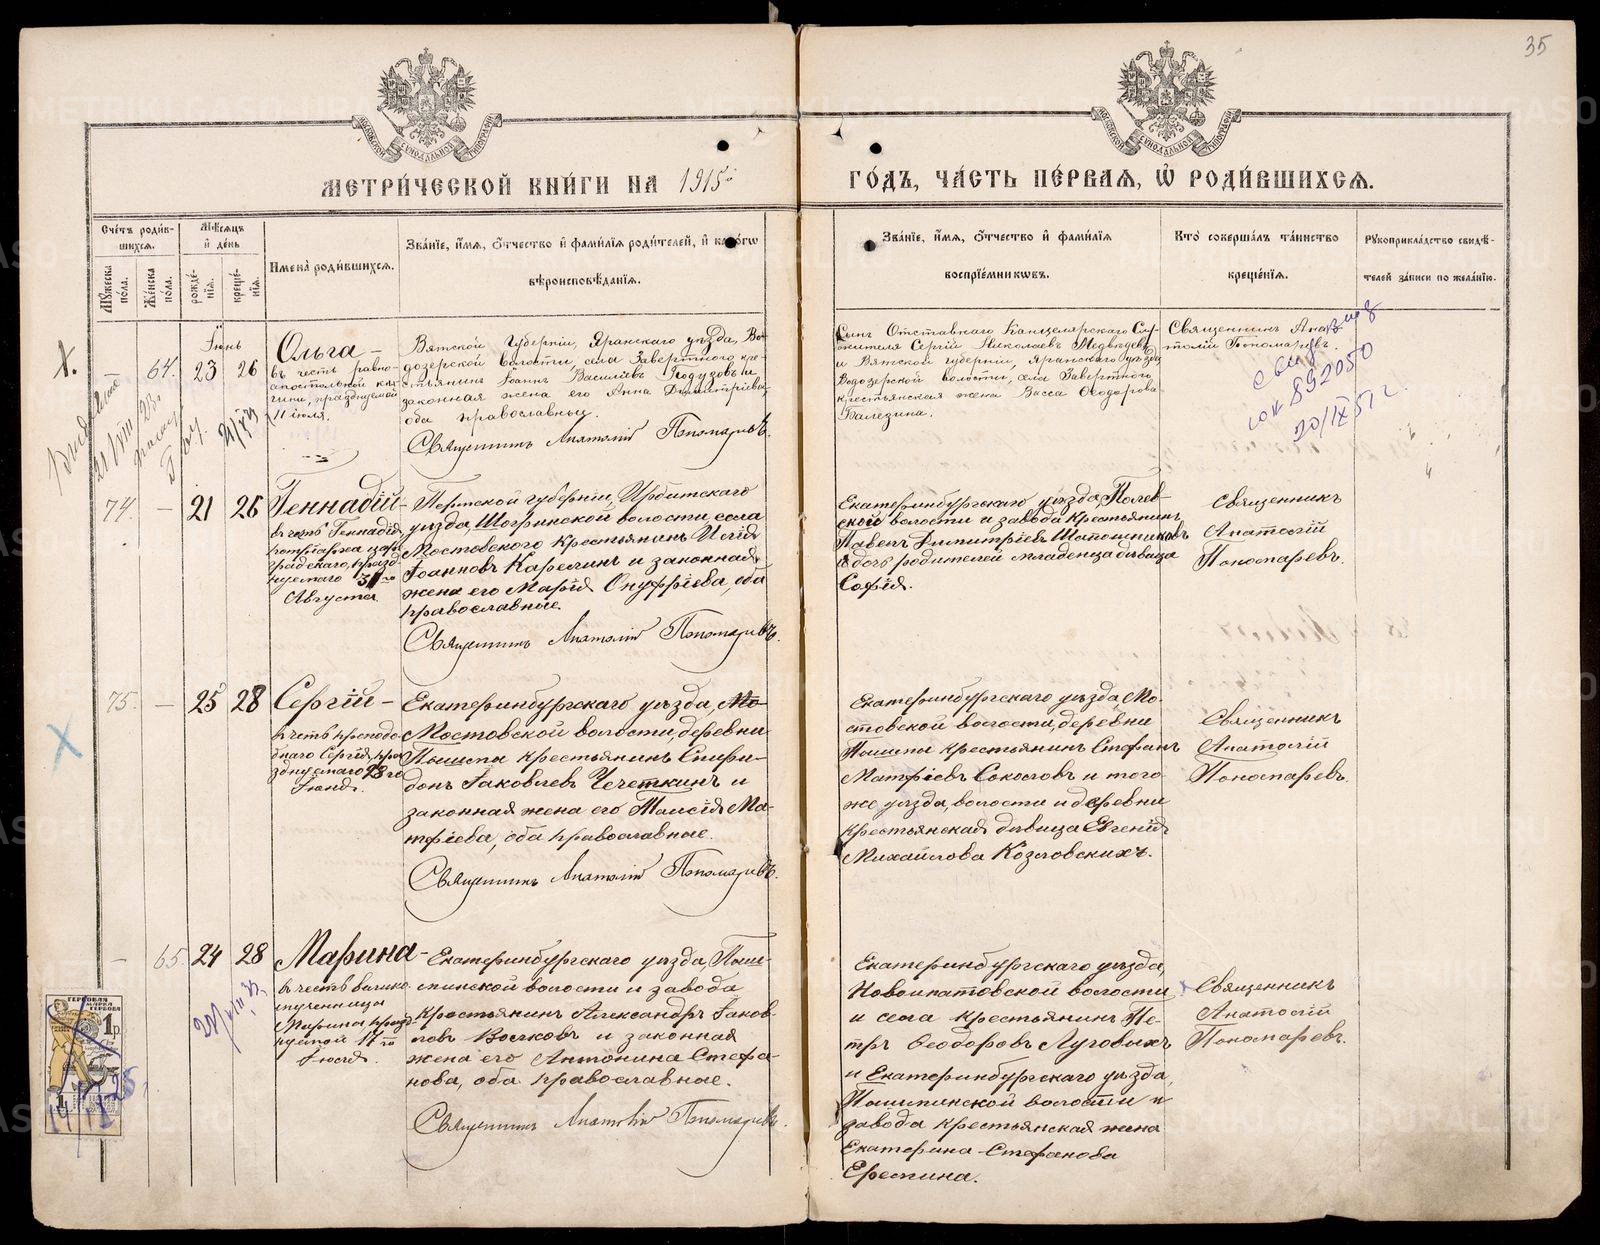 35
МЕТРИ́ЧЕСКОЙ КНИ́ГИ НА 1915й
ГО́ДЪ, ЧА́СТЬ ПЕ́РВАЯ, Ѡ҆ РОДИ́ВШИХСЯ.
Сче́тъ роди́в-
шихся.
Му́жеска
по́ла.
Же́нска
по́ла.
Мѣ́сяцъ
и҆ де́нь
рожде́-
нїя.
креще́-
нїя.
И҆мена̀ роди́вшихся.
Зва́нїе, и҆́мя, о҆́тчество и҆ фами́лїя роди́телей, и҆ како́гѡ
вѣроисповѣ́данїя.
Зва́нїе, и҆́мя, о҆́тчество и҆ фами́лїя
воспрїе́мникѡвъ.
Кто̀ соверша́лъ та́инство
креще́нїя.
Рукоприкла́дство свидѣ́-
телей за́писи по жела́нїю.
Іюнь
—
64.
23
26
Ольга —
въ честь равно-
апостольной кня-
гини, празднуемой
11 іюля.
Вятской Губерніи, Яранскаго уѣзда, Во-
дозерской волости, села Завертного кре-
стьянинъ Іоаннъ Василіевъ и
законная жена его Анна Димитріева,
оба православные.
Священникъ Анатолій Пономаревъ.
Сынъ Отставнаго Канцелярскаго Слу-
жителя Сергій Николаевъ Медвѣдевъ
и Вятской губерніи, Яранскаго уѣзда
Водозерской волости, села Завертного
крестьянская жена Васса Ѳеодорова
Балезина.
Священникъ Ана-
толій Пономаревъ.
892050
20/IX 51 г.
74.
—
21
26
Геннадій —
въ честь Геннадія
патріарха царе-
градскаго, празд-
нуемаго 31го
Августа.
Пермской губерніи, Ирбитскаго
уѣзда, Шогринской волости, села
Мостовского крестьянинъ Илія
Іоанновъ Карелинъ и законная
жена его Марія Онуфріева, оба
православные.
Священникъ Анатолій Пономаревъ.
Екатеринбургскаго уѣзда, Полев-
ской волости и завода крестьянинъ
Павелъ Димитріевъ Шапошниковъ
и дочь родителей младенца дѣвица
Софія.
Священникъ
Анатолій
Пономаревъ.
75.
—
25
28
Сергій —
въ честь преподо-
бнаго Сергія, пра-
зднуемаго 28го
Іюня.
Екатеринбургскаго уѣзда, Мо-
Мостовской волости, деревни
Пышмы крестьянинъ Спири-
донъ Іаковлевъ Чечеткинъ и
законная жена его Таисія Ма-
тфіева, оба православные.
Священникъ Анатолій Пономаревъ.
Екатеринбургскаго уѣзда, Мо-
стовской волости, деревни
Пышмы крестьянинъ Стефанъ
Матфіевъ Соколовъ и того-
же уѣзда, волости и деревни
крестьянская дѣвица Евгенія
Михайлова Козловскихъ.
Священникъ
Анатолій
Пономаревъ.
—
65.
24
28
Марина —
въ честь велико-
мученицы
Марины, празд-
нуемой 17го
Іюля.
Екатеринбургскаго уѣзда, Пыш-
минской волости и завода
крестьянинъ Александръ Іаков-
левъ Волковъ и законная
жена его Антонина Стефа-
нова, оба православные.
Священникъ Анатолій Пономаревъ.
Екатеринбургскаго уѣзда,
Новоипатовской волости
и села крестьянинъ Пе-
тръ Ѳеодоровъ Луговыхъ
и Екатеринбургскаго уѣзда,
Пышминской волости и
завода крестьянская жена
Екатерина Стефанова
Еремина.
Священникъ
Анатолій
Пономаревъ.
ГЕРБОВАЯ
МАРКА
1р